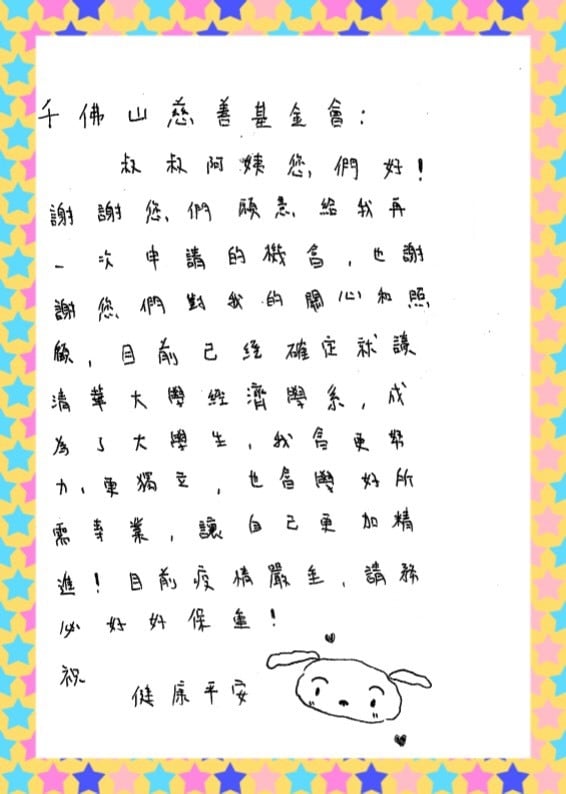 千佛山慈善基金會：
叔叔阿姨您們好！
謝謝您們願意給我再
一次申請的機會，也謝
謝您們對我的關心和照
顧，目前已經確定就讀
清華大學經濟學系，成
為了大學生，我會更努
力、更獨立，也會學好所
需專業，讓自己更加精
進！目前疫情嚴重，請務
必好好保重！
祝
健康平安